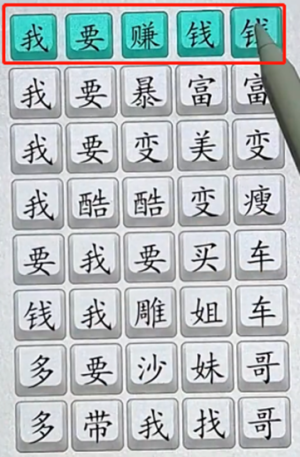 我要赚钱钱
我要暴富富
我要变美变
我酷酷变瘦
要我要买车
钱我雕姐车
多要沙妹哥
多带我找哥